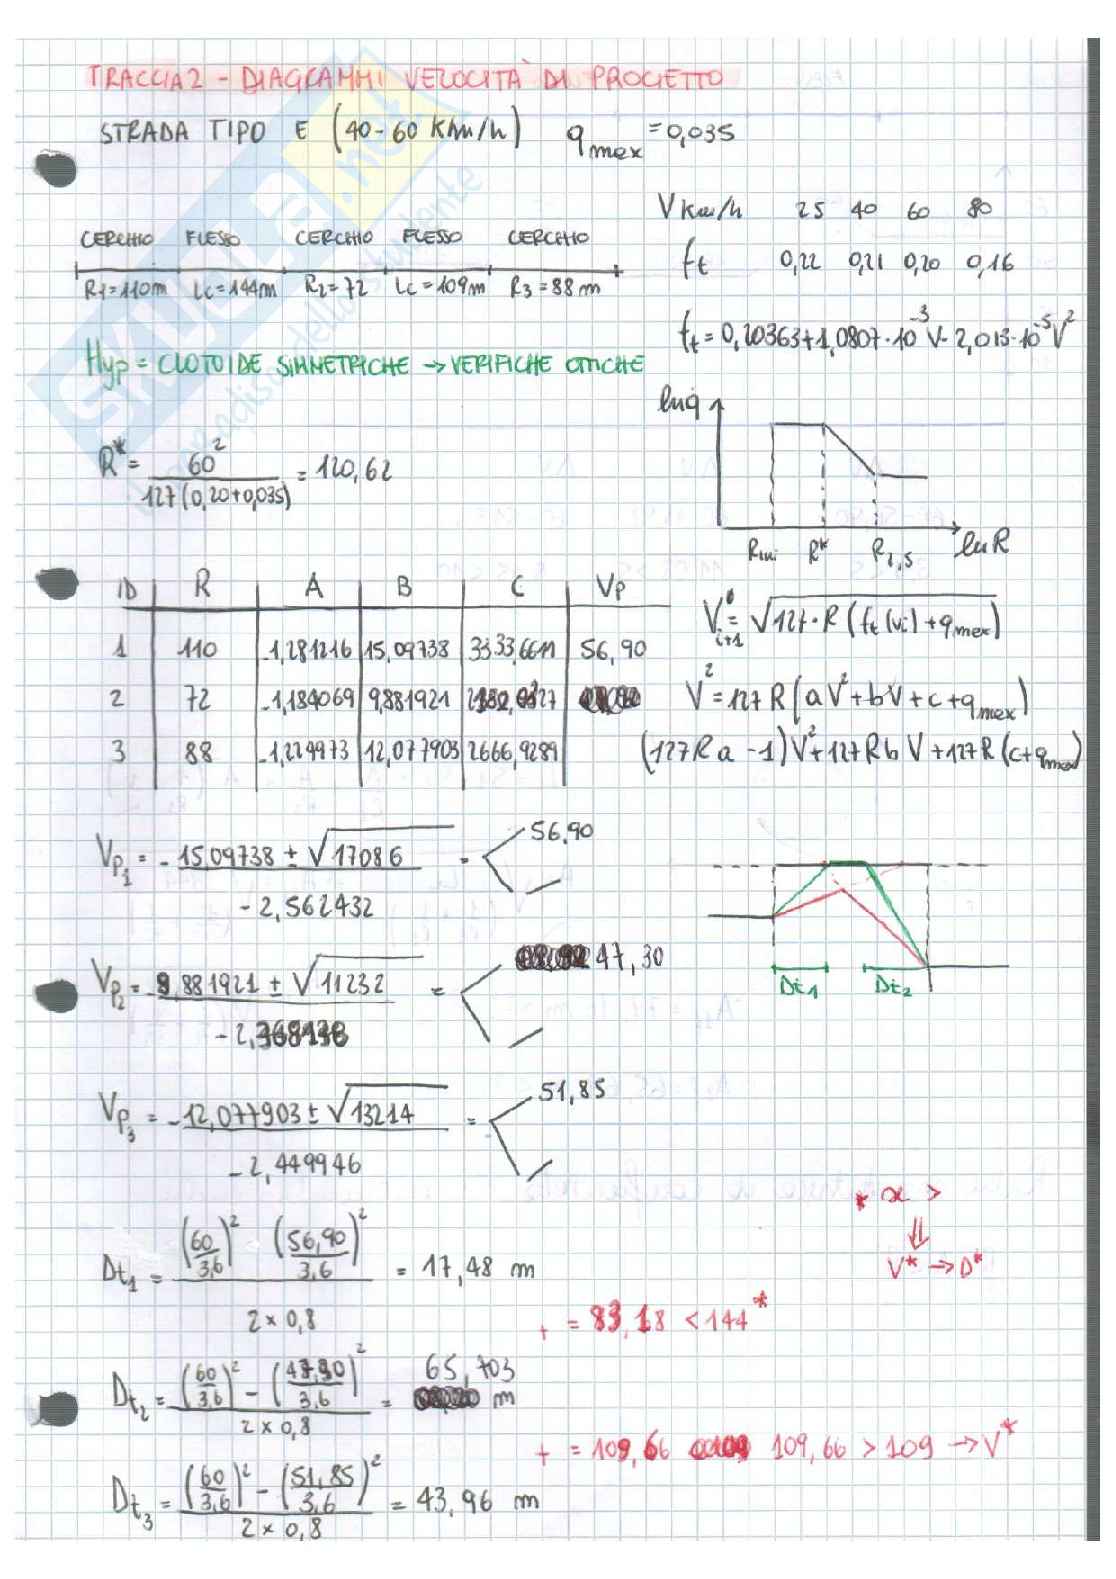 TRACCIA 2 - DIAGRAMMI VELOCITÀ DI PROGETTO
STRADA TIPO E (40-60 Km/h) q max = 0,035
V km/h 25 40 60 80
ft 0,22 0,21 0,20 0,16
ft = 0,20363+1,0807·10^-3 V - 2,013·10^-5 V^2
CERCHIO FLESSO CERCHIO FLESSO CERCHIO
R1=110m Lc=144m R2=72 Lc=109m R3=88m
Hyp = CLOTOIDE SIMMETRICHE → VERIFICHE OTTICHE
R* = 60^2 / 127(0,20+0,035) = 120,62
ln q
Rmin R* R2,5 ln R
ID R A B C Vp
1 110 -1,281216 15,09738 3333,6611 56,90
2 72 -1,184069 9,881921
3 88 -1,224973 12,077903 2666,9289
V i+1 = √127·R (ft (vi) + qmax)
V^2 = 127 R (aV^2 + bV + c + qmax)
(127Ra - 1)V^2 + 127RbV + 127R(c+qmax)
Vp1 = -15,09738 ± √17086 / -2,562432 = 56,90
Vp2 = -9,881921 ± √11232 / -2,368138 = 47,30
Vp3 = -12,077903 ± √13214 / -2,449946 = 51,85
Dt1 Dt2
* α >
⇓
V* → D*
Dt1 = (60/3,6)^2 - (56,90/3,6)^2 / 2 × 0,8 = 17,48 m
+ = 83,18 < 144*
Dt2 = (60/3,6)^2 - (47,30/3,6)^2 / 2 × 0,8 = 65,703 m
+ = 109,66 109,66 > 109 → V*
Dt3 = (60/3,6)^2 - (51,85/3,6)^2 / 2 × 0,8 = 43,96 m
SKUOLA.net